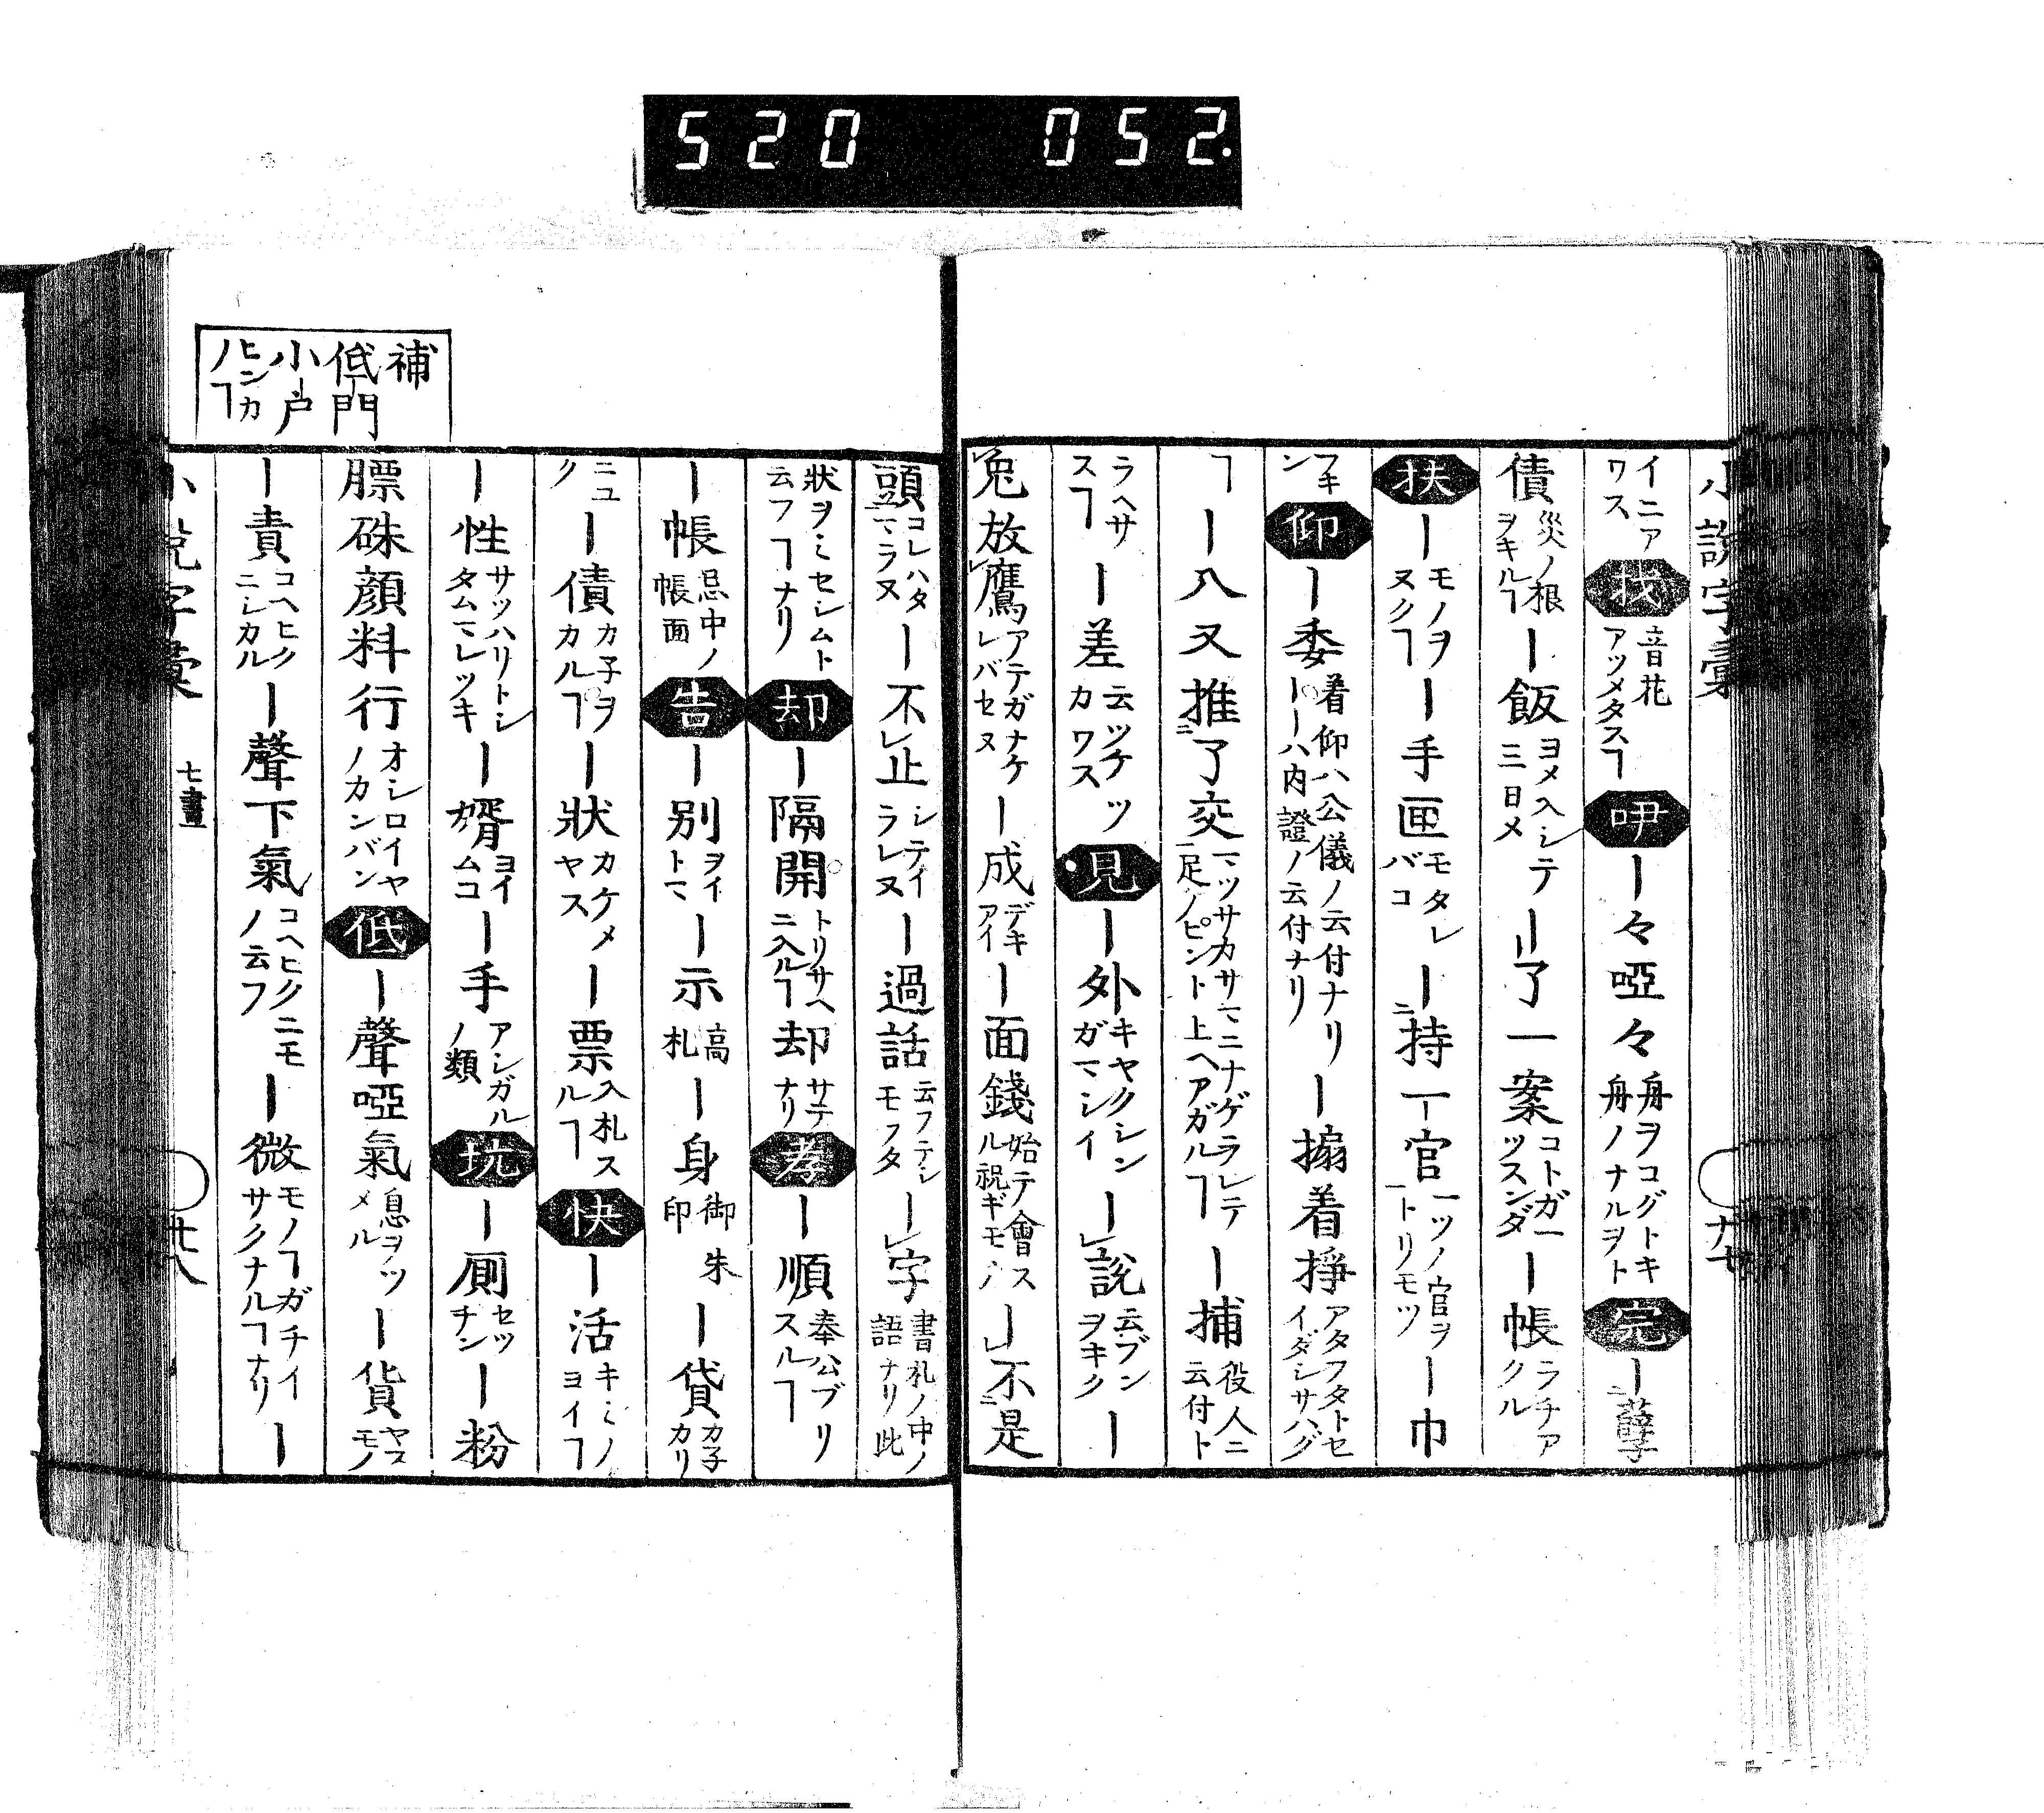 520 052.
小説字彙
イニアワス 找 音花アツメタスヿ 吚 ー々啞々 舟ヲコグトキ舟ノナルヲト 完 ー孽
債 災ノ根ヲキルヿ ー飯 ヨメ入シテ三日メ ー了一案 コトガ一ツスンダ ー帳 ラチアクル
扶 ー モノヲヌクヿ ー手匣 モタレバコ ー持ー官 一ツノ官ヲトリモツ ー巾
フキン 仰 ー委 着仰ハ公儀ノ云付ナリーーハ内證ノ云付ナリ ー搧着掙 アタフタトセイダシサハグ
ヿ ー八叉推了交 マツサカサマニナゲラレテ足ノピント上ヘアガルヿ ー捕 役人ニ云付ト
ラヘサスヿ ー差 云ツケツカワス 見 ー外 キヤクシンガマシイ ー説 云ブンヲキク ー
兎放鷹 アテガナケレバセヌ ー成 デキアイ ー面錢 始テ會スル祝ギモノ ー不是
頭 コレハタマラヌ ー不止 シテイラレヌ ー過話 云フテシモフタ ー字 書札ノ中ノ語ナリ此
狀ヲミセシムト云フヿナリ 却 ー隔開 トリサヘニ入ルヿ 却 サテナリ 孝 ー順 奉公ブリスルヿ
ー帳 忌中ノ帳面 告 ー別 ヲイトマ ー示 高札 ー身 御朱印 ー貸 カ子カリ
ニユク ー債 カ子ヲカルヿ ー狀 カケメヤス ー票 入札スルヿ 快 ー活 キミノヨイヿ
ー性 サツハリトシタムマレツキ ー婿 ヨイムコ ー手 アシガルノ類 坑 ー厠 セツチン ー粉
膘硃顔料行 オシロイヤノカンバン 低 ー聲啞氣 息ヲツメル ー貨 ヤスモノ
ー責 コヘヒクニシカル ー聲下氣 コヘヒクニモノ云フ ー微 モノヿガチイサクナルヿナリ ー
補
低門
小戸
ヒンカノヿ
小説字彙 七畫 廿八